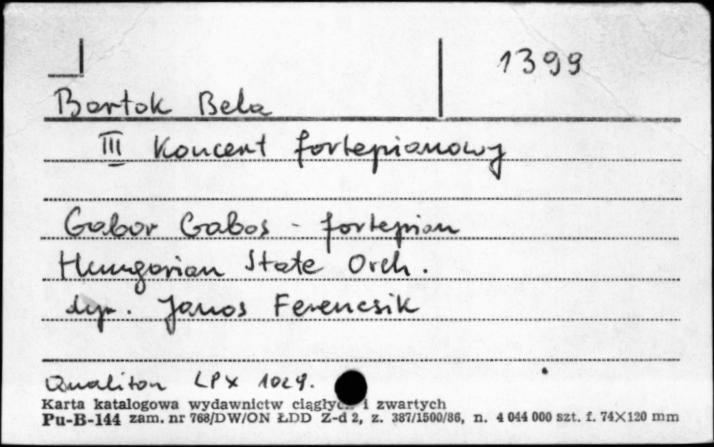 1399
Bartok Bela
III Koncert fortepianowy
Gabor Gabos - fortepian
Hungarian State Orch.
dyr. Janos Ferencsik
Qualiton LPX 1029.
Karta katalogowa wydawnictw ciągłych i zwartych
Pu-B-144 zam. nr 768/DW/ON ŁDD Z-d 2, z. 387/1500/86, n. 4 044 000 szt. f. 74×120 mm